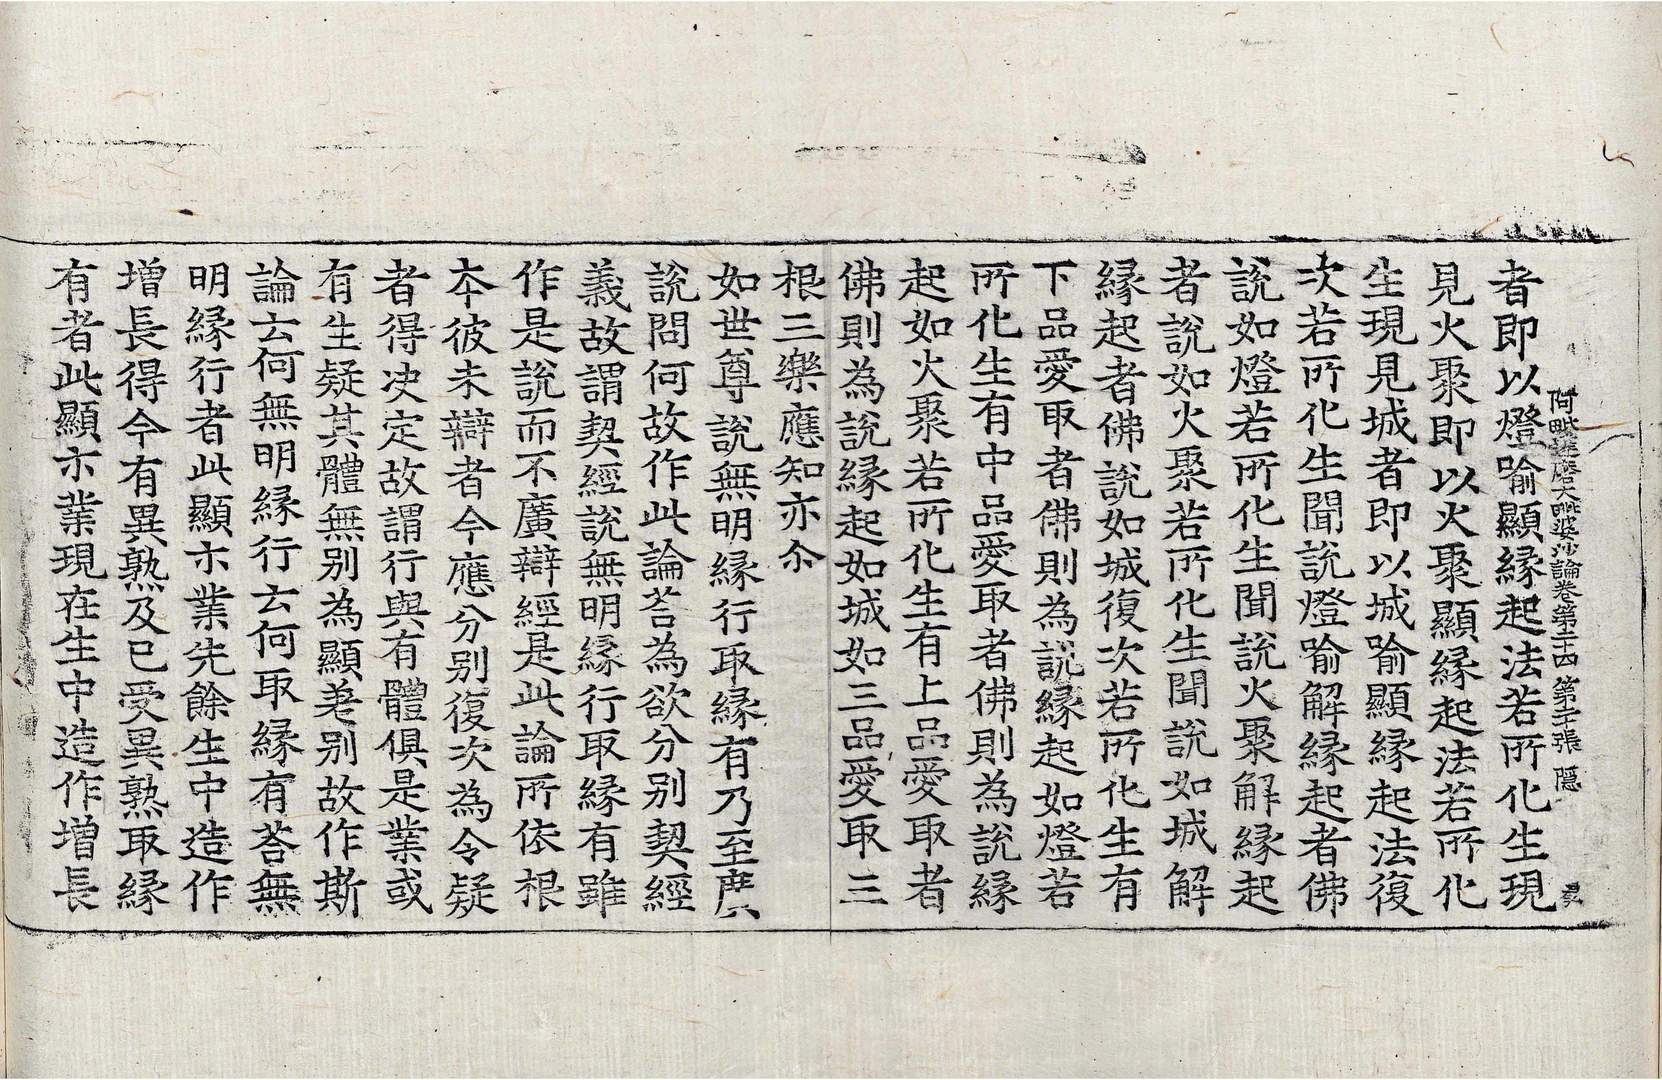 阿毗達磨大毗婆沙論卷第二十四 第二十張 隱
者即以燈喻顯縁起法若所化生現
見火聚即以火聚顯縁起法若所化
生現見城者即以城喻顯縁起法復
次若所化生聞說燈喻解縁起者佛
說如燈若所化生聞說火聚解縁起
者說如火聚若所化生聞說如城解
縁起者佛說如城復次若所化生有
下品愛取者佛則為說縁起如燈若
所化生有中品愛取者佛則為說縁
起如火聚若所化生有上品愛取者
佛則為說縁起如城如三品愛取三
根三樂應知亦尒
如世尊說無明縁行取縁有乃至廣
說問何故作此論荅為欲分別契經
義故謂契經說無明縁行取縁有雖
作是說而不廣辯經是此論所依根
夲彼未辯者今應分別復次為令疑
者得决定故謂行與有體俱是業或
有生疑其體無別為顯差別故作斯
論云何無明縁行云何取縁有荅無
明縁行者此顯示業先餘生中造作
增長得今有異熟及已受異熟取縁
有者此顯示業現在生中造作增長